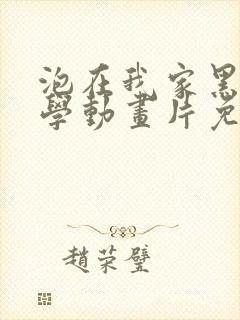 泡在我家黑
學動畫片免
趙荣璧